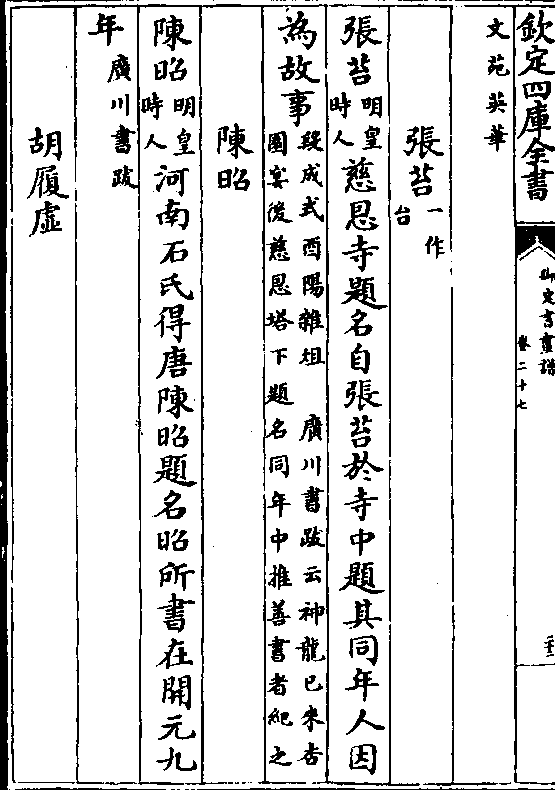 欽定四庫全書
御定書畫譜
卷二十七
文苑英華
張苔一作台
張苔明皇時人慈恩寺題名自張苔於寺中題其同年人因
為故事段成式酉陽雜俎 廣川書跋云神龍已來杏園宴後慈恩塔下題名同年中推善書者紀之
陳昭
陳昭明皇時人河南石氏得唐陳昭題名昭所書在開元九
年廣川書跋
胡履虛